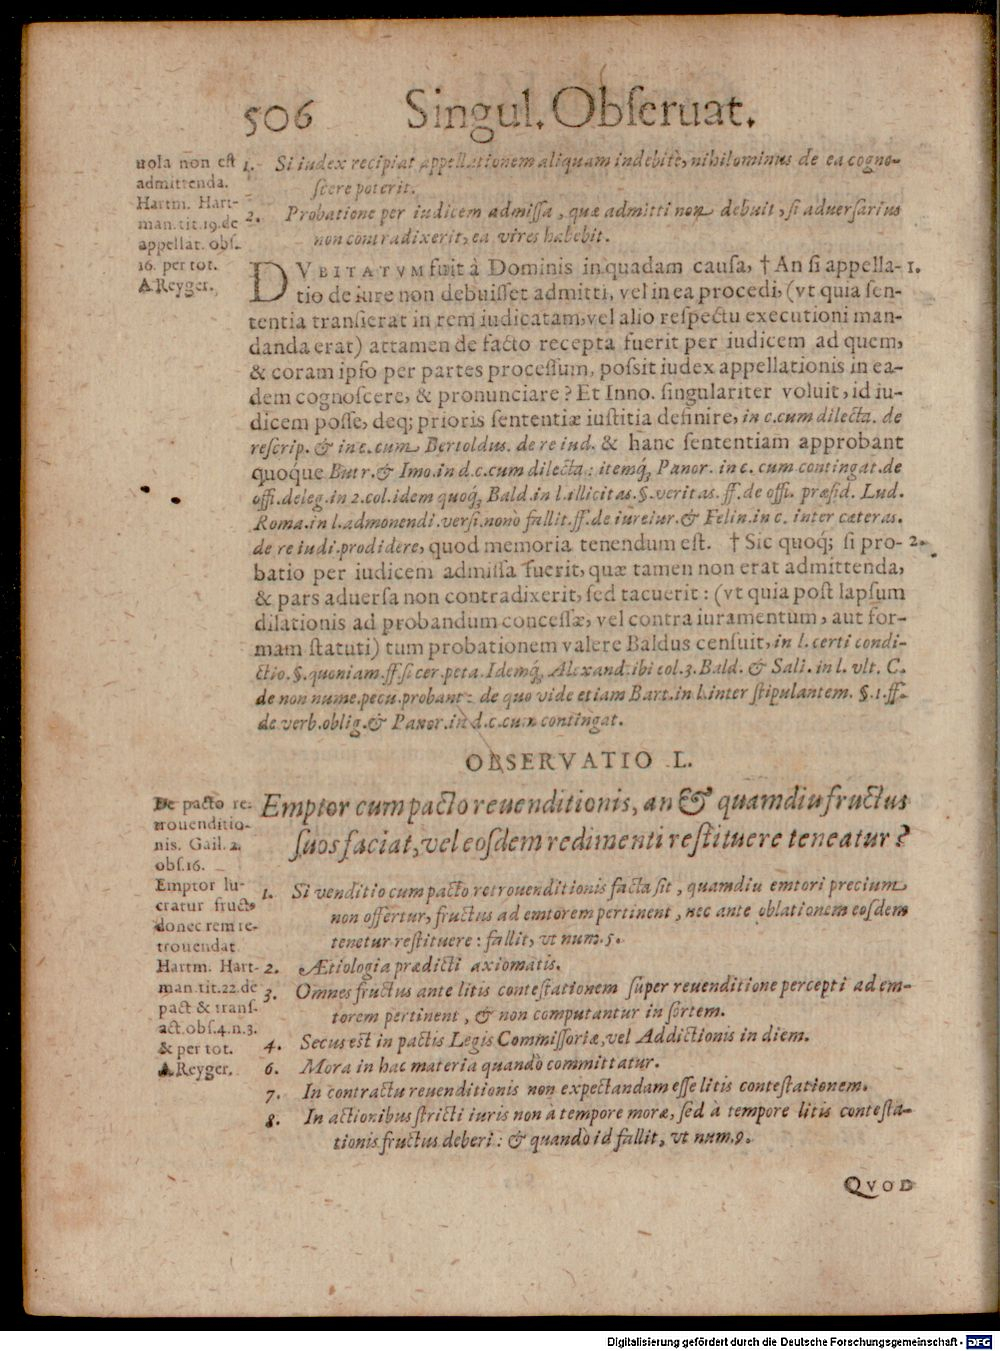 506 Singul. Obseruat.
uola non est
admittenda.
Hartm. Hart-
man. tit. 19. de
appellat. obs.
16. per tot.
A Reyger.
1. Si iudex recipiat appellationem aliquam indebitè, nihilominus de ea cogno-
scere poterit.
2. Probatione per iudicem admissa, quæ admitti non debuit, si aduersarius
non contradixerit, ea vires habebit.
DVBITATVM fuit à Dominis in quadam causa, † An si appella- 1.
tio de iure non debuisset admitti, vel in ea procedi, (vt quia sen-
tentia transierat in rem iudicatam, vel alio respectu executioni man-
danda erat) attamen de facto recepta fuerit per iudicem ad quem,
& coram ipso per partes processum, possit iudex appellationis in ea-
dem cognoscere, & pronunciare? Et Inno. singulariter voluit, id iu-
dicem posse, deq; prioris sententiæ iustitia definire, in c. cum dilecta. de
rescrip. & in c. cum Bertoldus. de re iud. & hanc sententiam approbant
quoque Butr. & Imo. in d. c. cum dilecta: itemq; Panor. in c. cum contingat. de
offi. deleg. in 2. col. idem quoq; Bald. in l. illicitas. §. veritas. ff. de offi. præsid. Lud.
Roma. in l. admonendi. versi. nonò fallit. ff. de iureiur. & Felin. in c. inter cæteras.
de re iudi. prodidere, quod memoria tenendum est. † Sic quoq; si pro- 2.
batio per iudicem admissa fuerit, quæ tamen non erat admittenda,
& pars aduersa non contradixerit, sed tacuerit: (vt quia post lapsum
dilationis ad probandum concessæ, vel contra iuramentum, aut for-
mam statuti) tum probationem valere Baldus censuit, in l. certi condi-
ctio. §. quoniam. ff. si cer. peta. Idemq; Alexand. ibi col. 3. Bald. & Sali. in l. vlt. C.
de non nume. pecu. probant: de quo vide etiam Bart. in l. inter stipulantem. §. 1. ff.
de verb. oblig. & Panor. in d. c. cum contingat.
OBSERVATIO L.
De pacto re-
trouenditio-
nis. Gail. 2.
obs. 16.
Emptor lu-
cratur fruct9
donec rem re-
trouendat
Hartm. Hart-
man. tit. 22. de
pact & trans-
act. obs. 4. n. 3.
& per tot.
A Reyger.
Emptor cum pacto reuenditionis, an & quamdiu fructus
suos faciat, vel eosdem redimenti restituere teneatur?
1. Si venditio cum pacto retrouenditionis facta sit, quamdiu emtori precium
non offertur, fructus ad emtorem pertinent, nec ante oblationem eosdem
tenetur restituere: fallit, vt num. 5.
2. Ætiologia prædicti axiomatis.
3. Omnes fructus ante litis contestationem super reuenditione percepti ad em-
torem pertinent, & non computantur in sortem.
4. Secus est in pactis Legis Commissoriæ, vel Addictionis in diem.
6. Mora in hac materia quandò committatur.
7. In contractu reuenditionis non expectandam esse litis contestationem.
8. In actionibus stricti iuris non à tempore moræ, sed à tempore litis contesta-
tionis fructus deberi: & quandò id fallit, vt num. 9.
QVOD
Digitalisierung gefördert durch die Deutsche Forschungsgemeinschaft - DFG